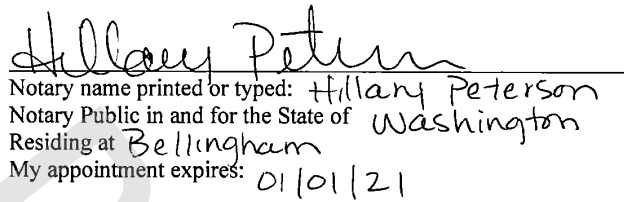 Hillary Peterson
Notary name printed or typed: Hillary Peterson
Notary Public in and for the State of Washington
Residing at Bellingham
My appointment expires: 01/01/21